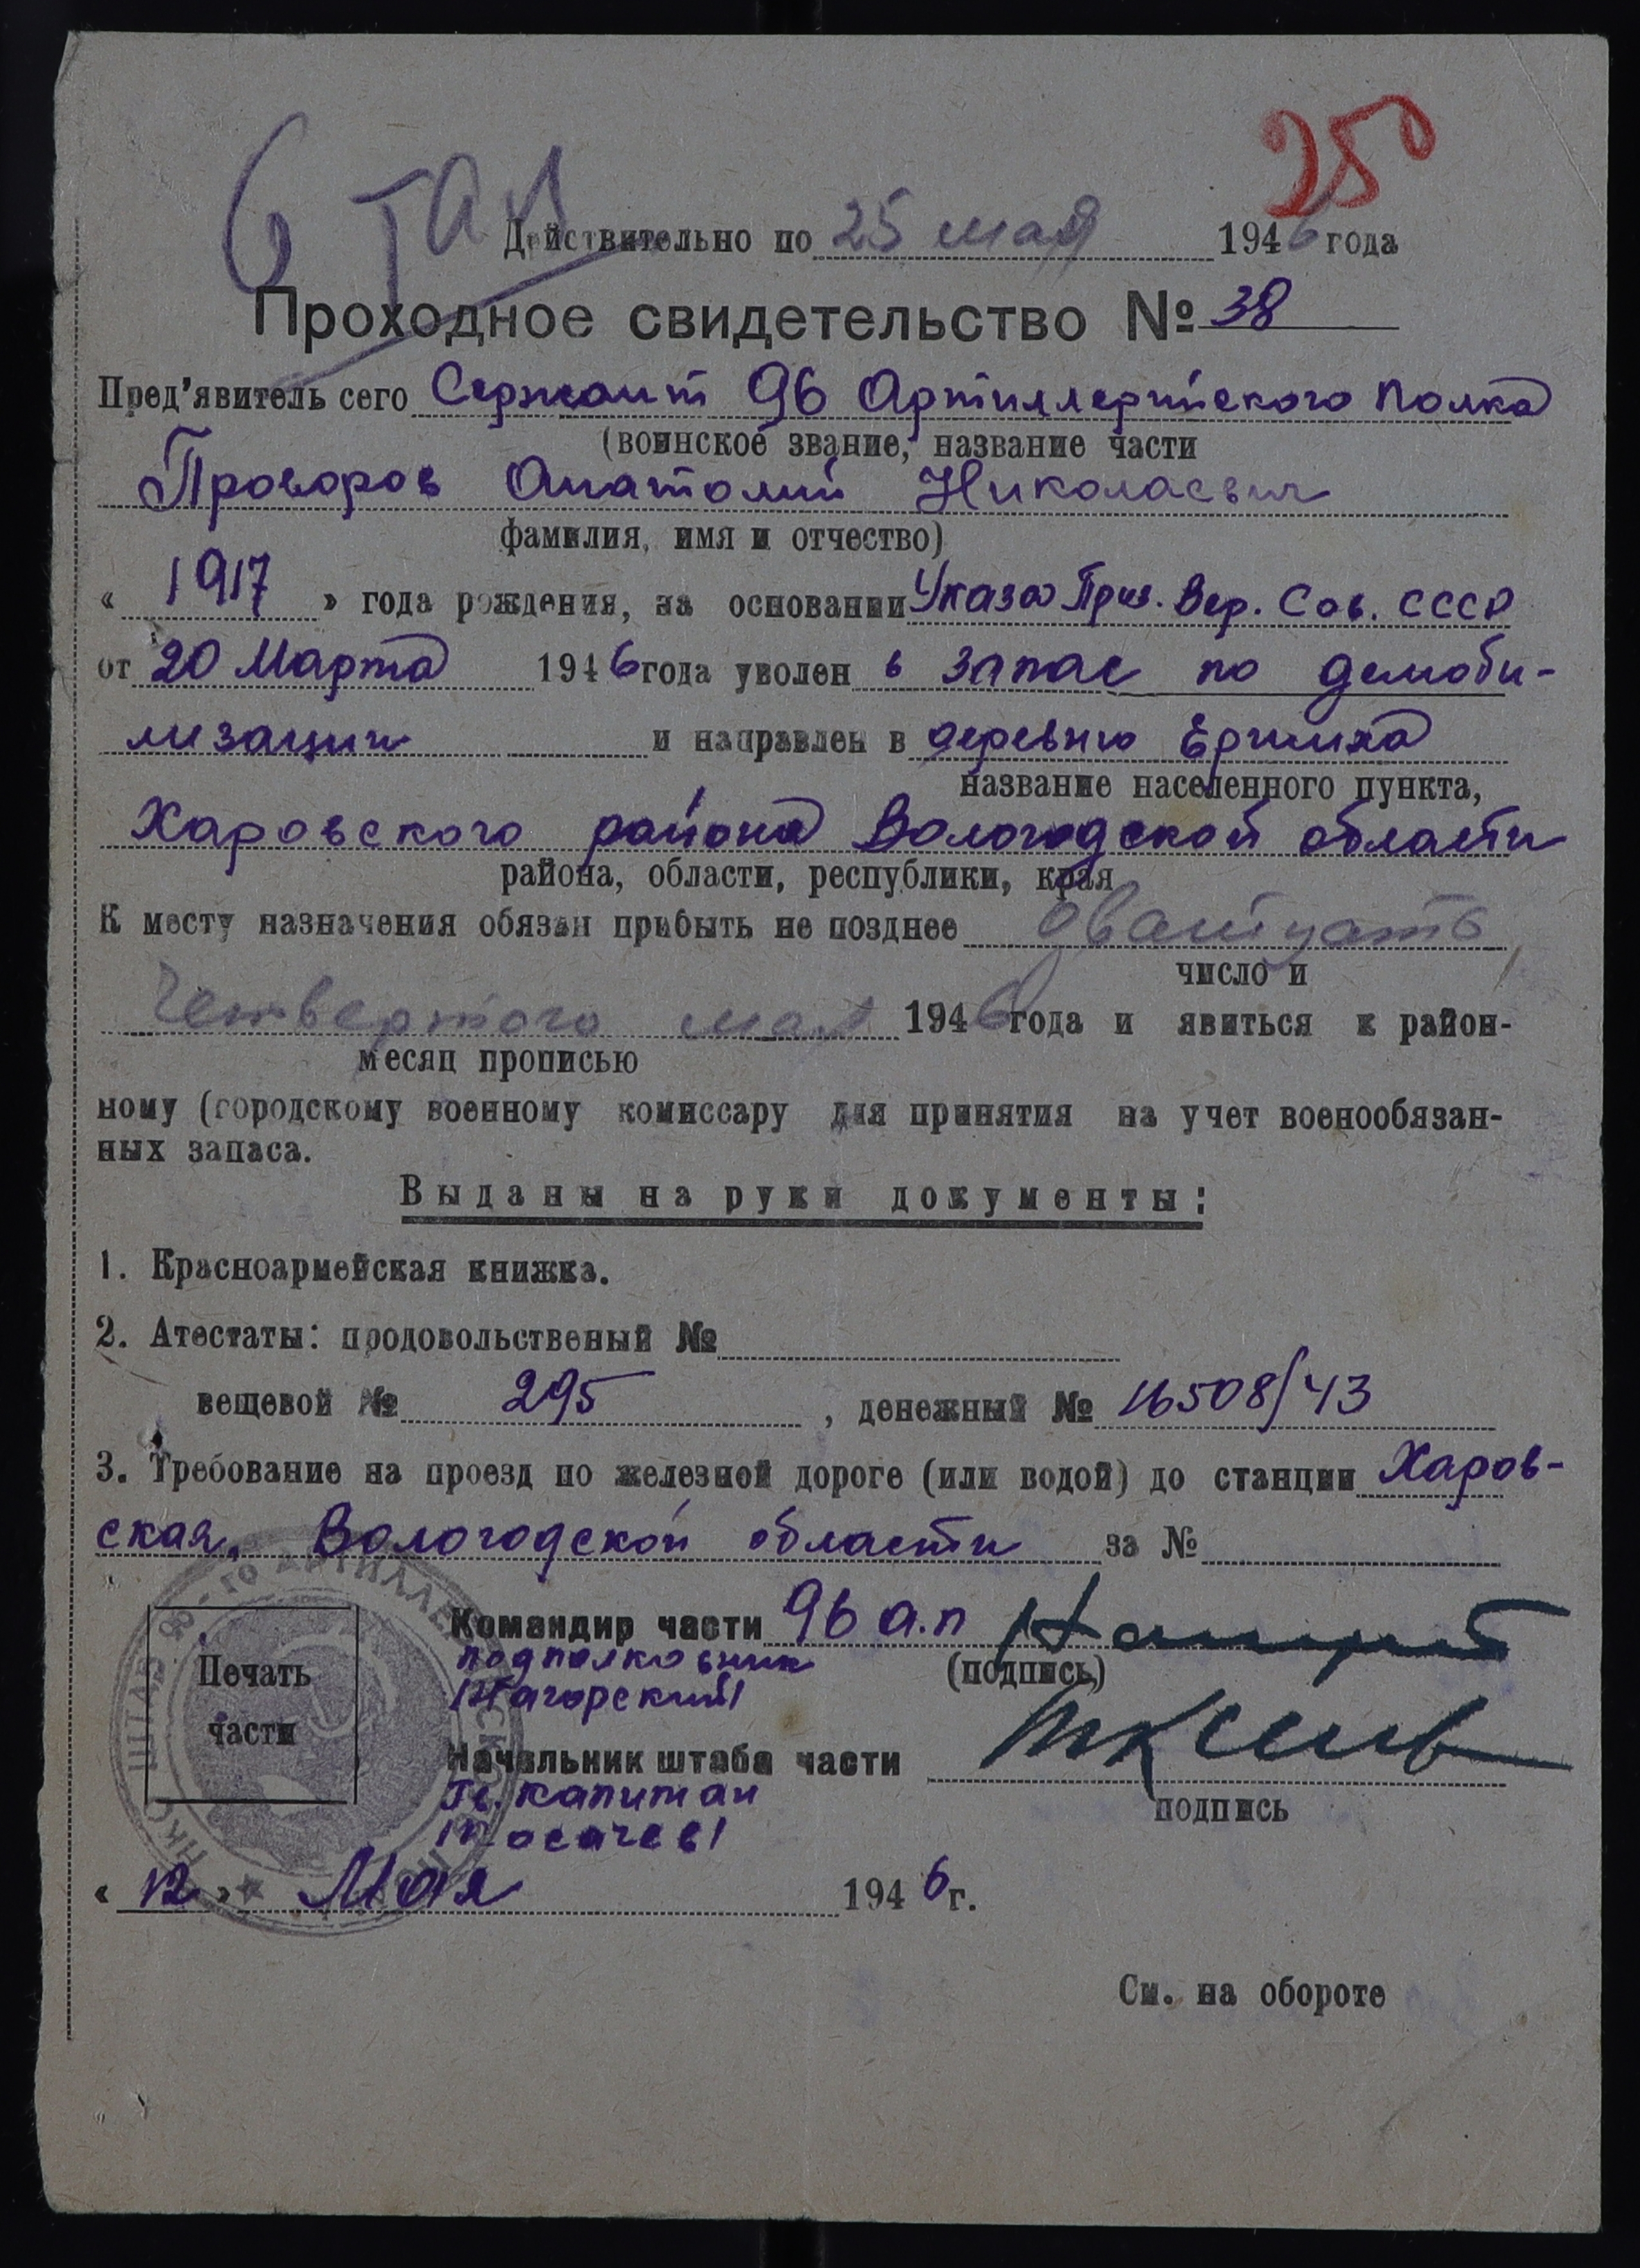 250
6 ТАП
Действительно по 25 мая 1946 года
Проходное свидетельство № 38
Пред'явитель сего Сержант 96 Артиллерийского Полка
(воинское звание, название части
Проворов Анатолий Николаевич
фамилия, имя и отчество)
« 1917 » года рождения, на основании Указа През. Вер. Сов. СССР
от 20 Марта 1946 года уволен в запас по демоби-
лизации и направлен в деревню Ершиха
название населенного пункта,
Харовского района Вологодской области
района, области, республики, края
К месту назначения обязан прибыть не позднее дватцать
число и
четвертого мая 1946 года и явиться к район-
месяц прописью
ному (городскому военному комиссару для принятия на учет военообязан-
ных запаса.
Выданы на руки документы:
1. Красноармейская книжка.
2. Атестаты: продовольственый №
вещевой № 295, денежный № 16508/43
3. Требование на проезд по железной дороге (или водой) до станции Харов-
ская, Вологодской области за №
Командир части 96 а.п
подполковник
(подпись)
/Нагорский/
Печать
части
Начальник штаба части
Гв. капитан
подпись
/Косачев/
« 12 » Мая 1946 г.
См. на обороте